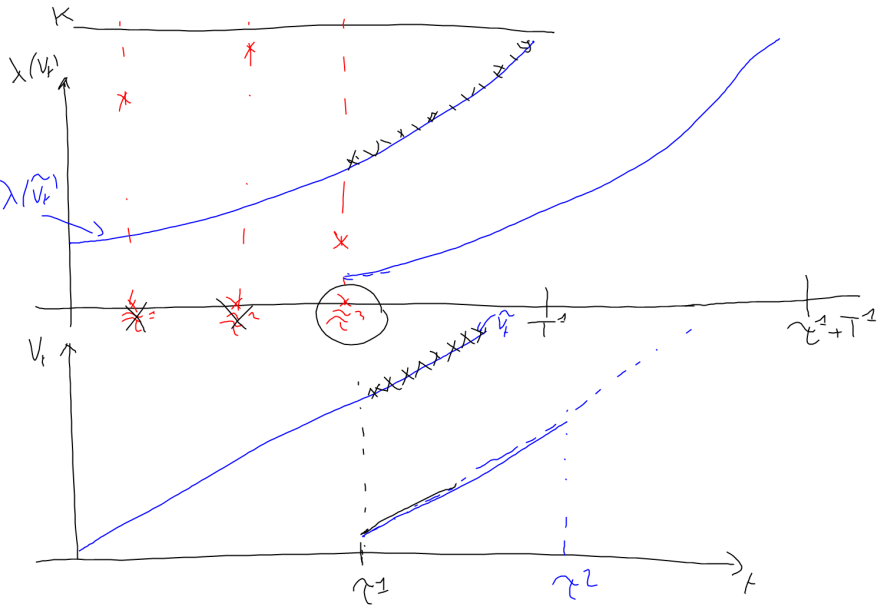 K
λ(Vₜ)
λ(Ṽₜ)
τ̃¹ τ̃² τ̃³ T¹ τ¹+T¹
Vₜ Ṽₜ
τ¹ τ² t